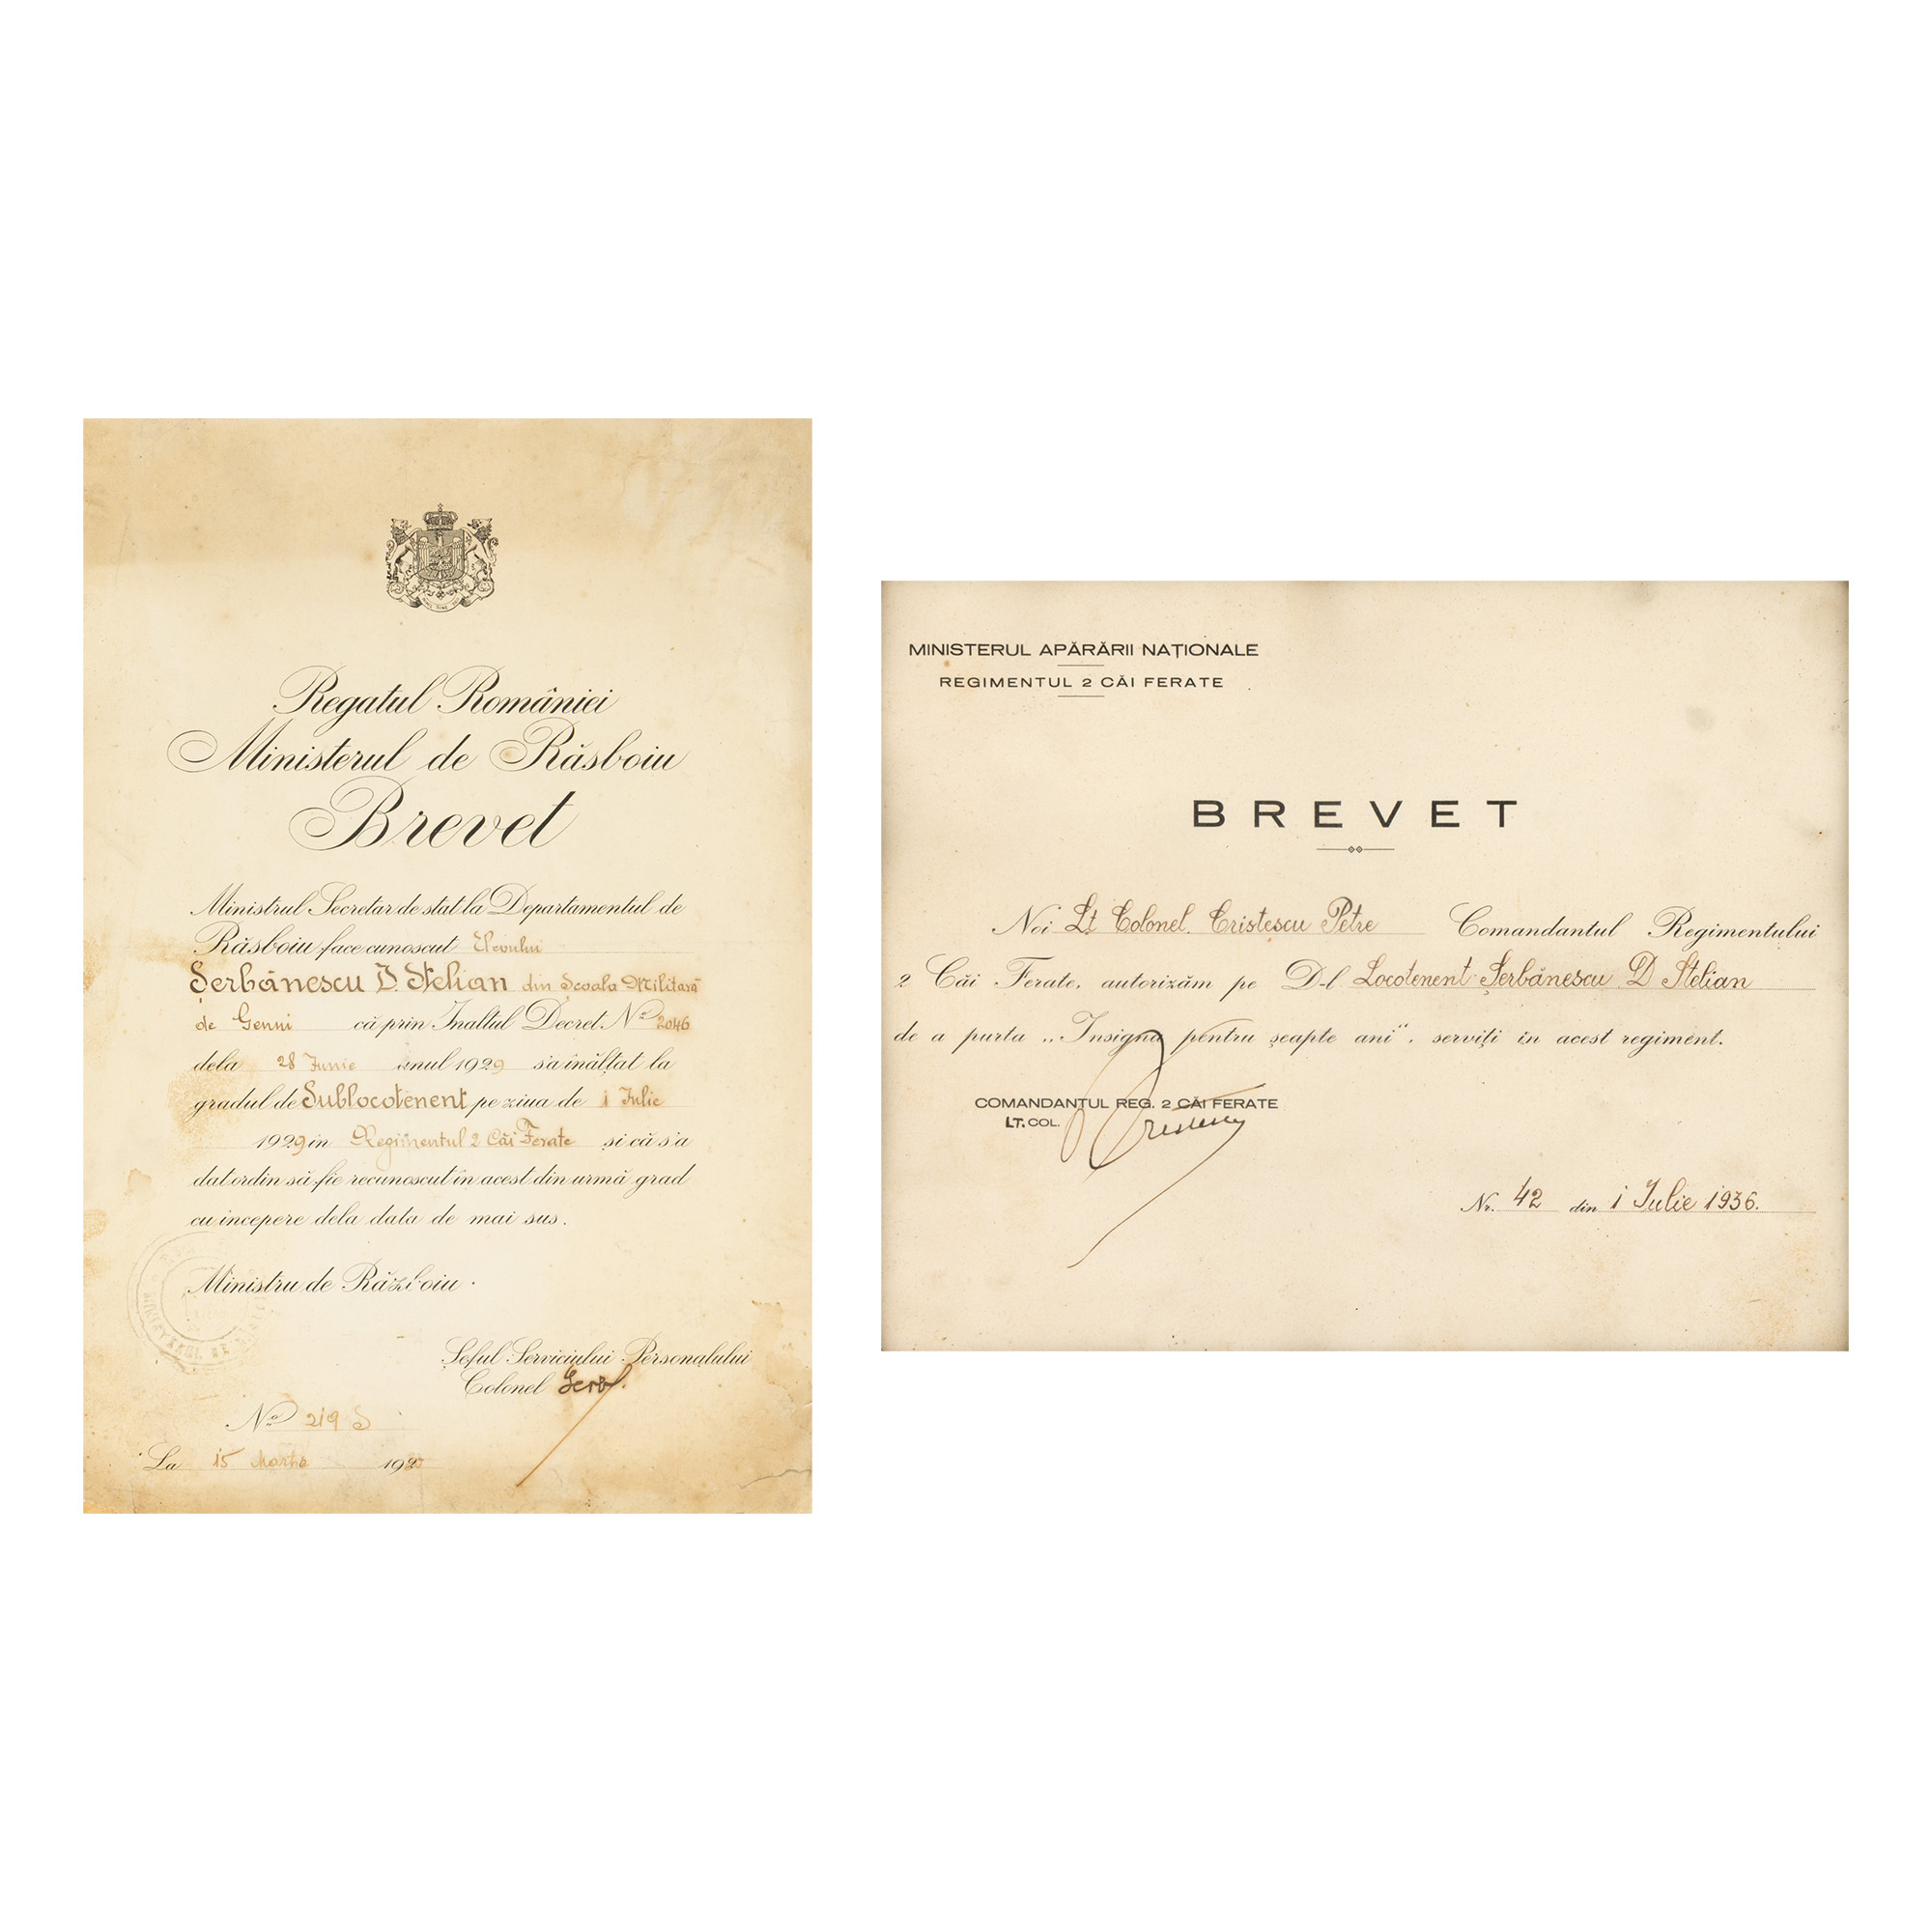 Regatul României
Ministerul de Răsboiu
Brevet
Ministrul Secretar de stat la Departamentul de
Răsboiu face cunoscut Elevului
Șerbănescu D. Stelian din Școala Militară
de Geniu că prin Inaltul Decret No 2046
dela 28 Iunie anul 1929 s'a înălțat la
gradul de Sublocotenent pe ziua de 1 Iulie
1929 in Regimentul 2 Căi Ferate și că s'a
dat ordin să fie recunoscut în acest din urmă grad
cu incepere dela data de mai sus.
Ministru de Război
Șeful Serviciului Personalului
Colonel
No 219
La 15 Martie 19
MINISTERUL APĂRĂRII NAȚIONALE
REGIMENTUL 2 CĂI FERATE
BREVET
Noi Lt Colonel. Cristescu Petre Comandantul Regimentului
2 Căi Ferate, autorizăm pe D-l Locotenent Șerbănescu D Stelian
de a purta „Insigna pentru șeapte ani", serviți în acest regiment.
COMANDANTUL REG. 2 CĂI FERATE
LT. COL. Cristescu
Nr. 42 din 1 Iulie 1936.